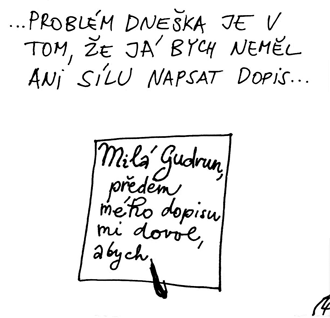 ...PROBLÉM DNEŠKA JE V
TOM, ŽE JÁ BYCH NEMĚL
ANI SÍLU NAPSAT DOPIS...
Milá Gudrun,
předem
mého dopisu
mi dovol,
abych